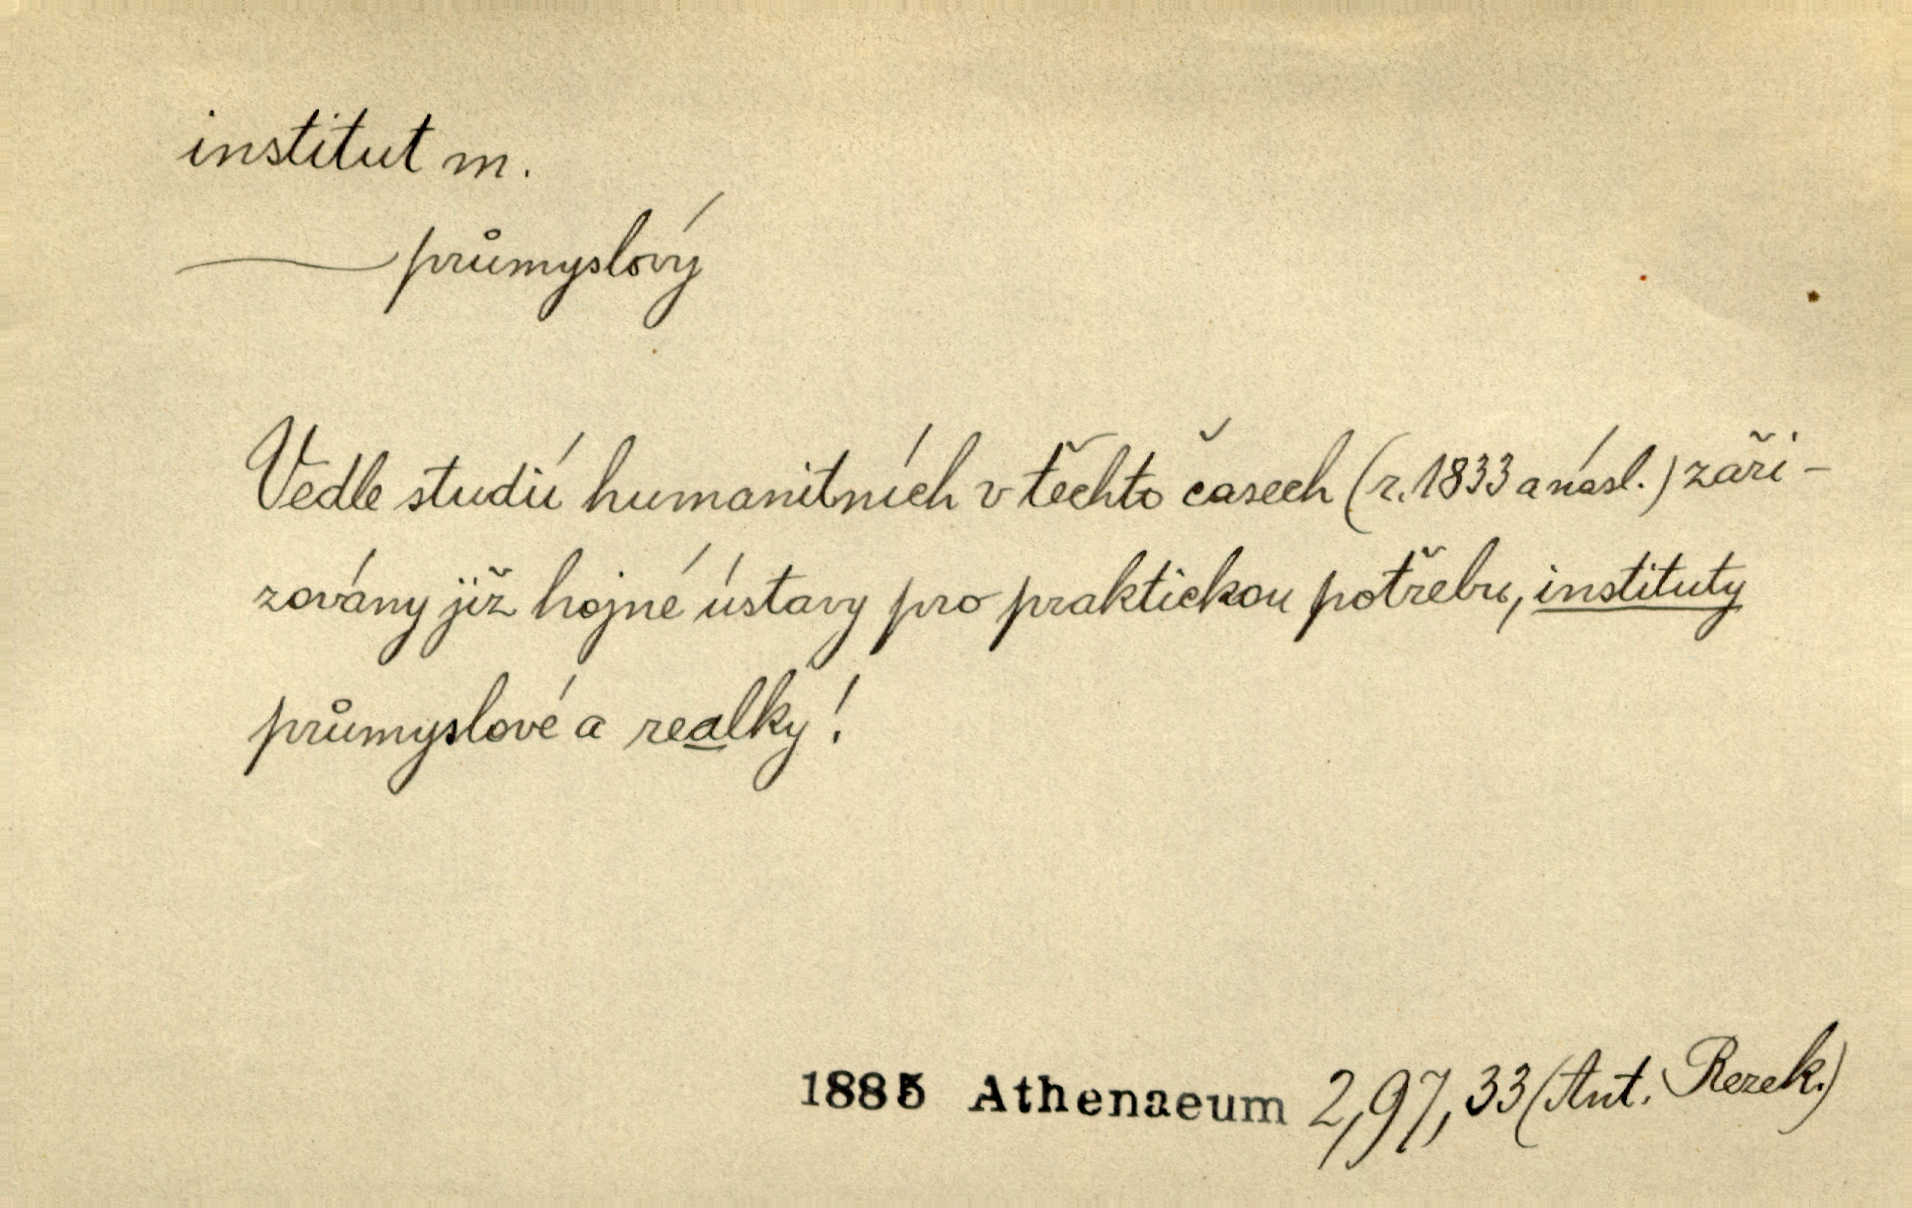 institut m.
— průmyslový
Vedle studií humanitních v těchto časech (r. 1833 a násl.) zaři-
zovány již hojné ústavy pro praktickou potřebu, instituty
průmyslové a realky!
1885 Athenaeum 2,97,33 (Ant. Rezek.)